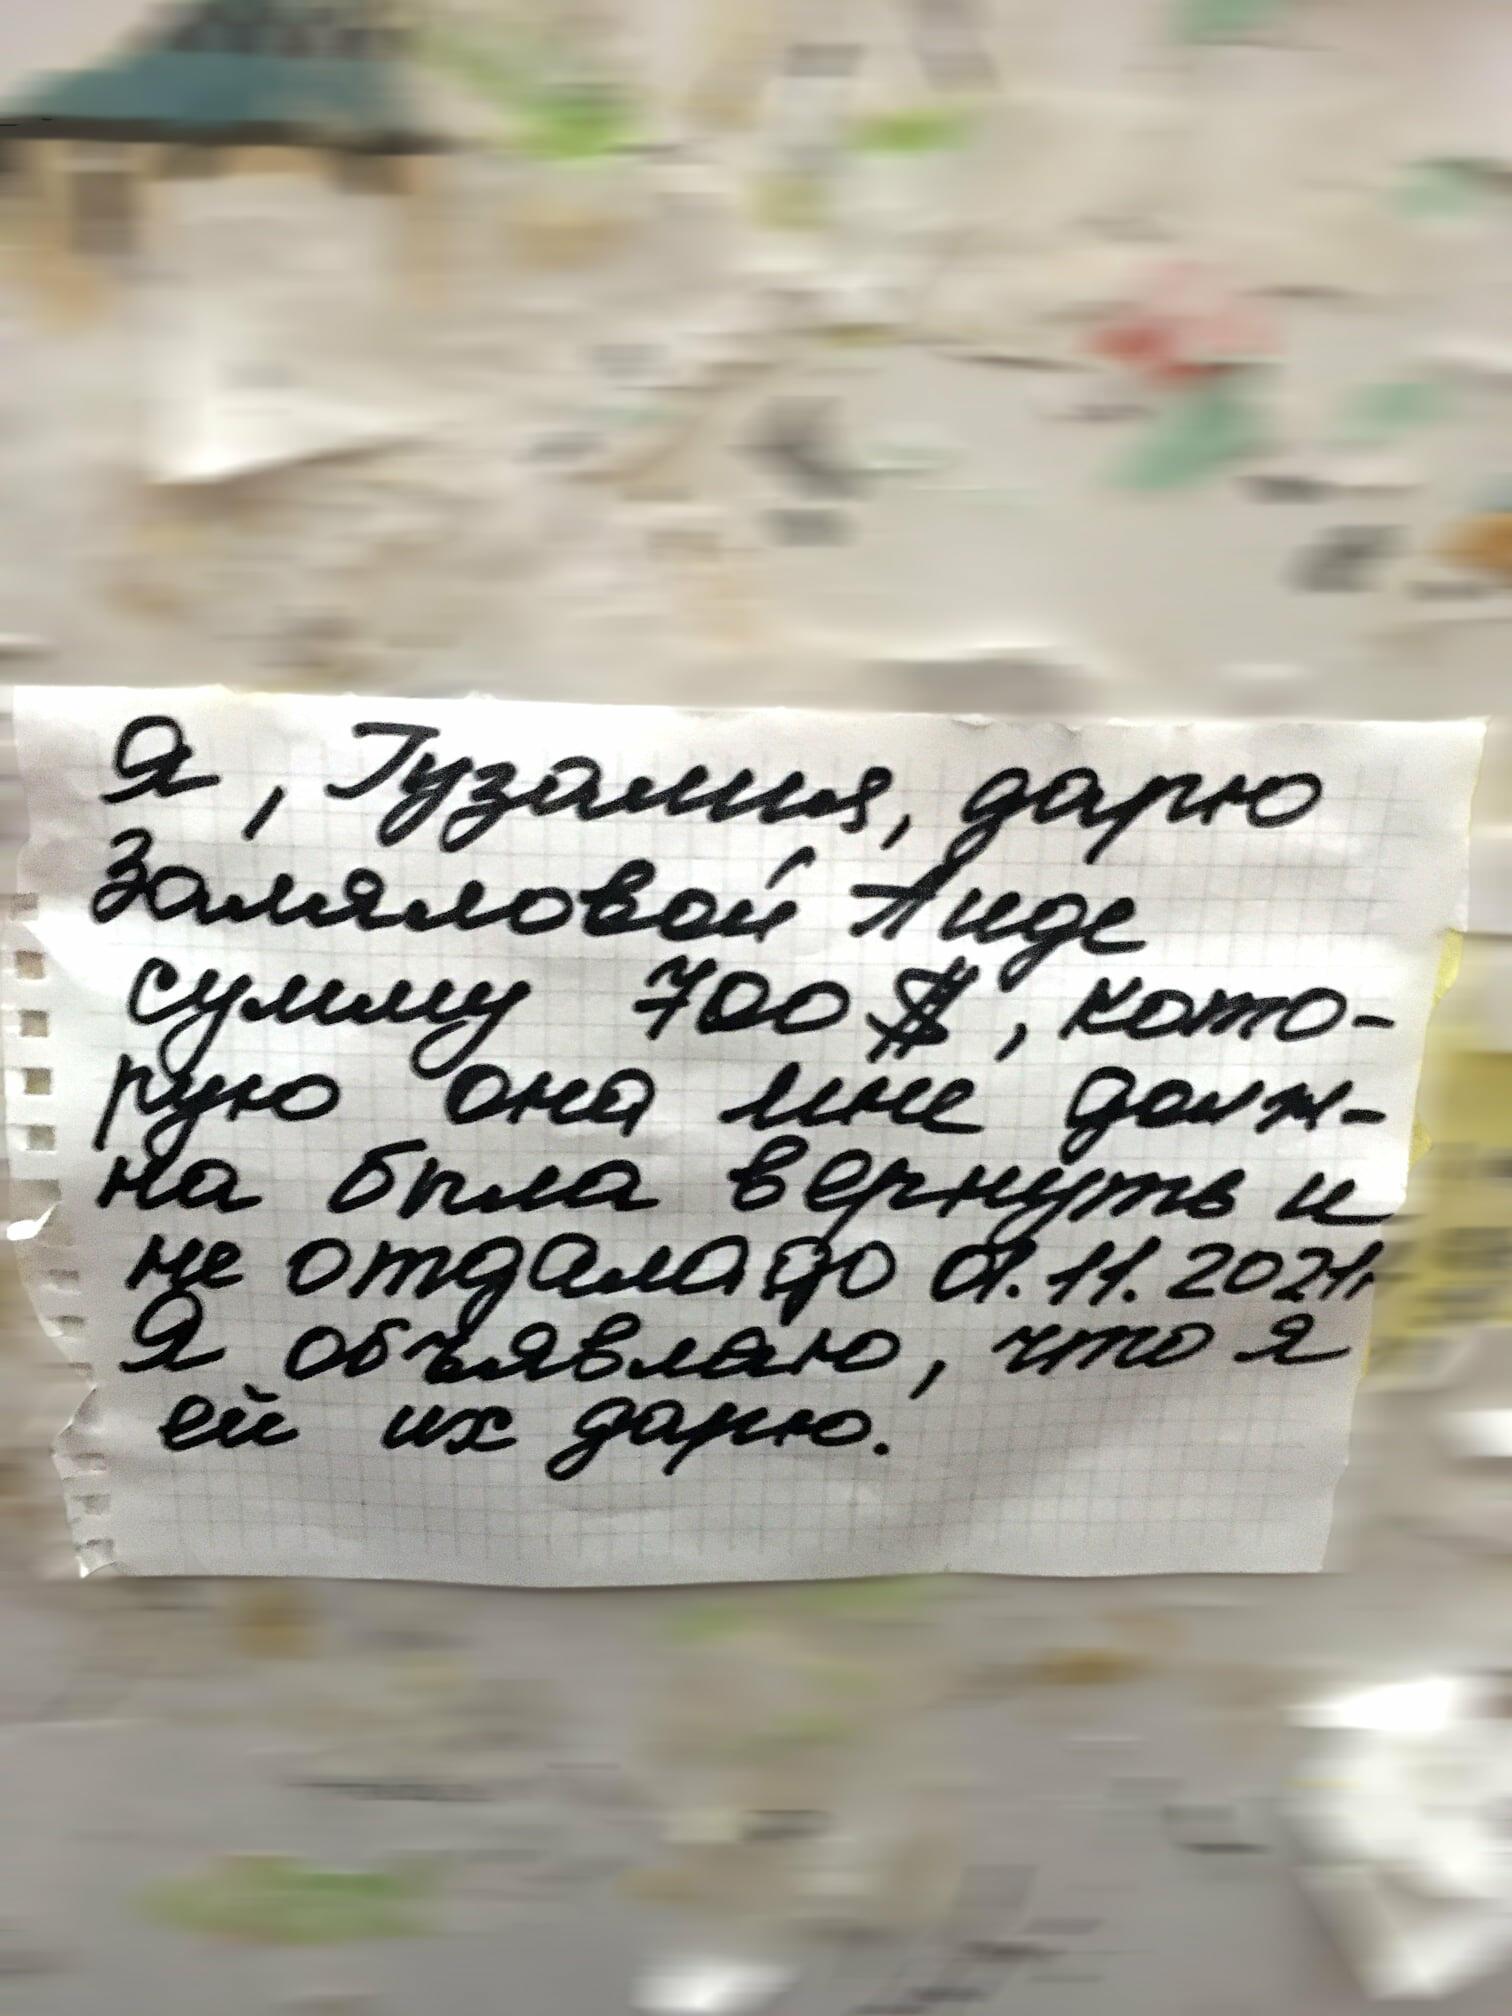 Я, Гузалия, дарю
Замяловой Аиде
сумму 700$, кото-
рую она мне долж-
на была вернуть и
не отдала до 01.11.2021г.
Я объявляю, что я
ей их дарю.